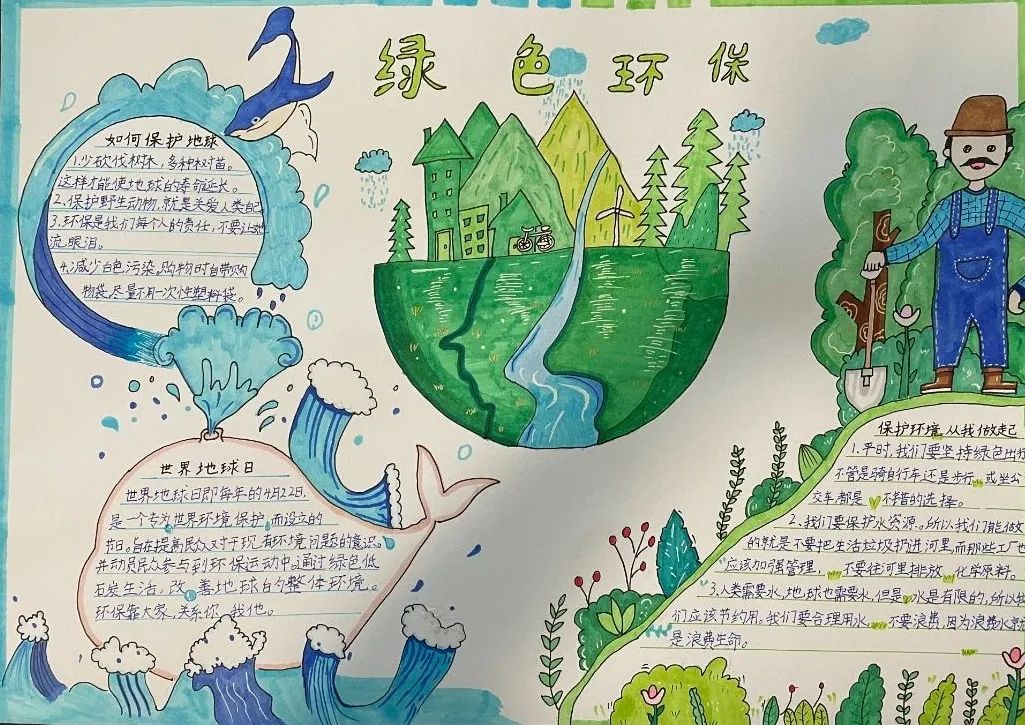 绿色环保
如何保护地球
1.少砍伐树木，多种树苗。
这样才能使地球的寿命延长。
2.保护野生动物，就是关爱人类自己
3.环保是我们每个人的责任，不要让她
流眼泪。
4.减少白色污染。购物时自带购
物袋，尽量不用一次性塑料袋。
世界地球日
世界地球日即每年的4月22日，
是一个专为世界环境保护而设立的
节日。旨在提高民众对于现有环境问题的意识。
并动员民众参与到环保运动中，通过绿色低
碳生活，改善地球的整体环境。
环保靠大家，关系你我他。
保护环境 从我做起
1.平时，我们要坚持绿色出行
不管是骑自行车还是步行 或坐公
交车都是 不错的选择。
2.我们要保护水资源。所以我们能做
的就是不要把生活垃圾扔进河里，而那些工厂也
应该加强管理， 不要往河里排放 化学原料。
3.人类需要水，地球也需要水，但是 水是有限的，所以
们应该节约用。我们要合理用水 不要浪费，因为浪费水就
是浪费生命。